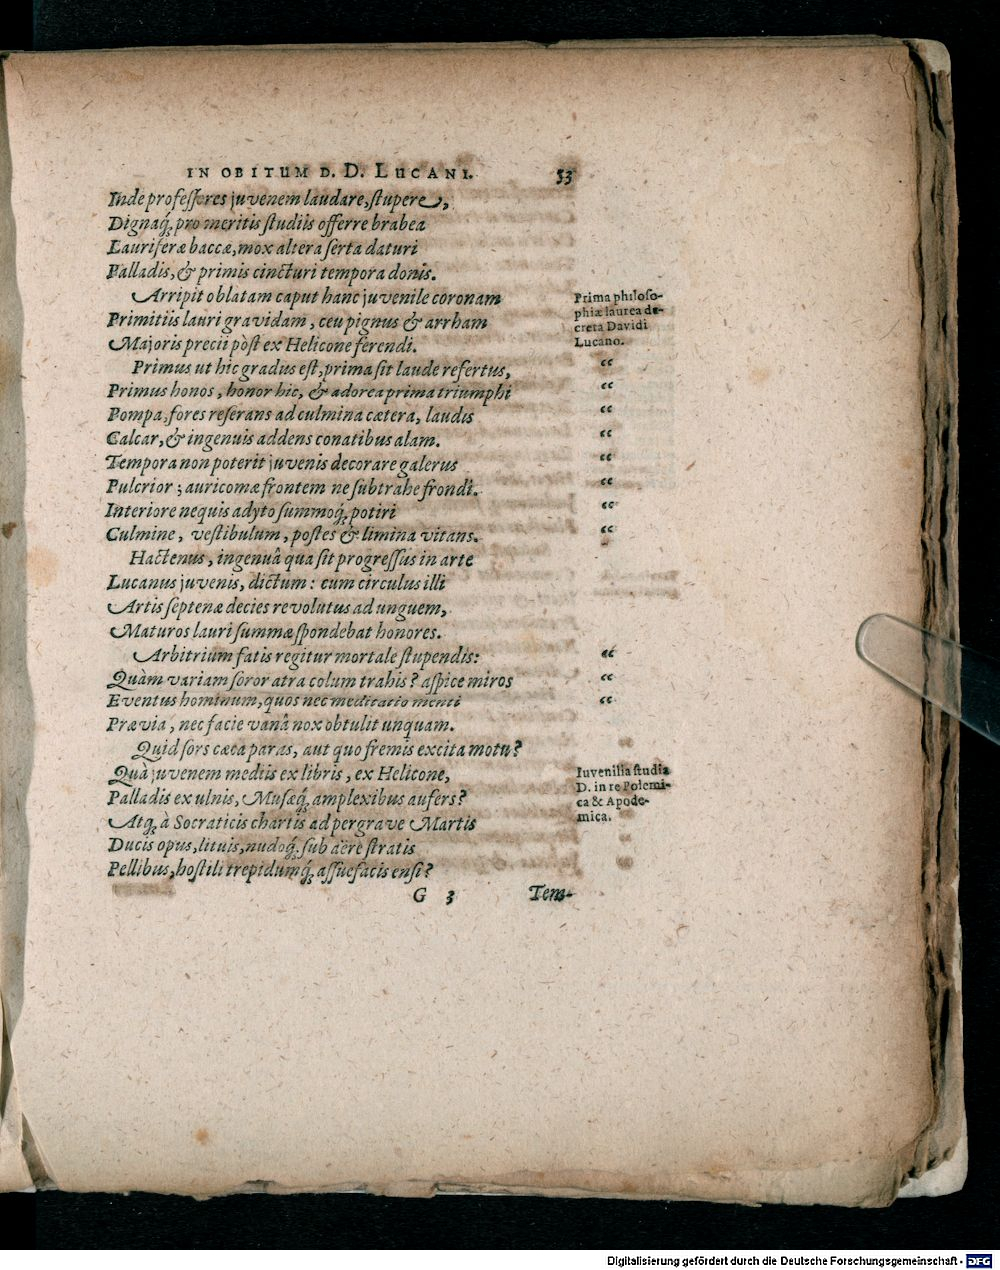 IN OBITUM D. D. LUCANI. 53
Inde professores juvenem laudare, stupere,
Dignaq́; pro meritis studiis offerre brabea
Lauriferæ baccæ, mox altera serta daturi
Palladis, & primis cincturi tempora donis.
Arripit oblatam caput hanc juvenile coronam
Primitiis lauri gravidam, ceu pignus & arrham
Majoris precii pòst ex Helicone ferendi.
Prima philoso-
phiæ laurea de-
creta Davidi
Lucano.
Primus ut hic gradus est, prima sit laude refertus, “
Primus honos, honor hic, & adorea prima triumphi “
Pompa, fores reserans ad culmina cætera, laudis “
Calcar, & ingenuis addens conatibus alam. “
Tempora non poterit juvenis decorare galerus “
Pulcrior; auricomæ frontem ne subtrahe frondi. “
Interiore nequis adyto summoq́; potiri “
Culmine, vestibulum, postes & limina vitans. “
Hactenus, ingenuâ qua sit progressus in arte
Lucanus juvenis, dictum: cum circulus illi
Artis septenæ decies revolutus ad unguem,
Maturos lauri summæ spondebat honores.
Arbitrium fatis regitur mortale stupendis: “
Quàm variam soror atra colum trahis? aspice miros “
Eventus hominum, quos nec meditatio menti “
Prævia, nec facie vanâ nox obtulit unquam.
Quid sors cæca paras, aut quo fremis excita motu?
Quà juvenem mediis ex libris, ex Helicone,
Palladis ex ulnis, Musæq́; amplexibus aufers?
Atq; à Socraticis chartis ad pergrave Martis
Ducis opus, lituis, nudoq́; sub aëre stratis
Pellibus, hostili trepidumq́; assuefacis ensi?
Iuvenilia studia
D. in re Polemi-
ca & Apode-
mica.
G 3 Tem-
Digitalisierung gefördert durch die Deutsche Forschungsgemeinschaft - DFG